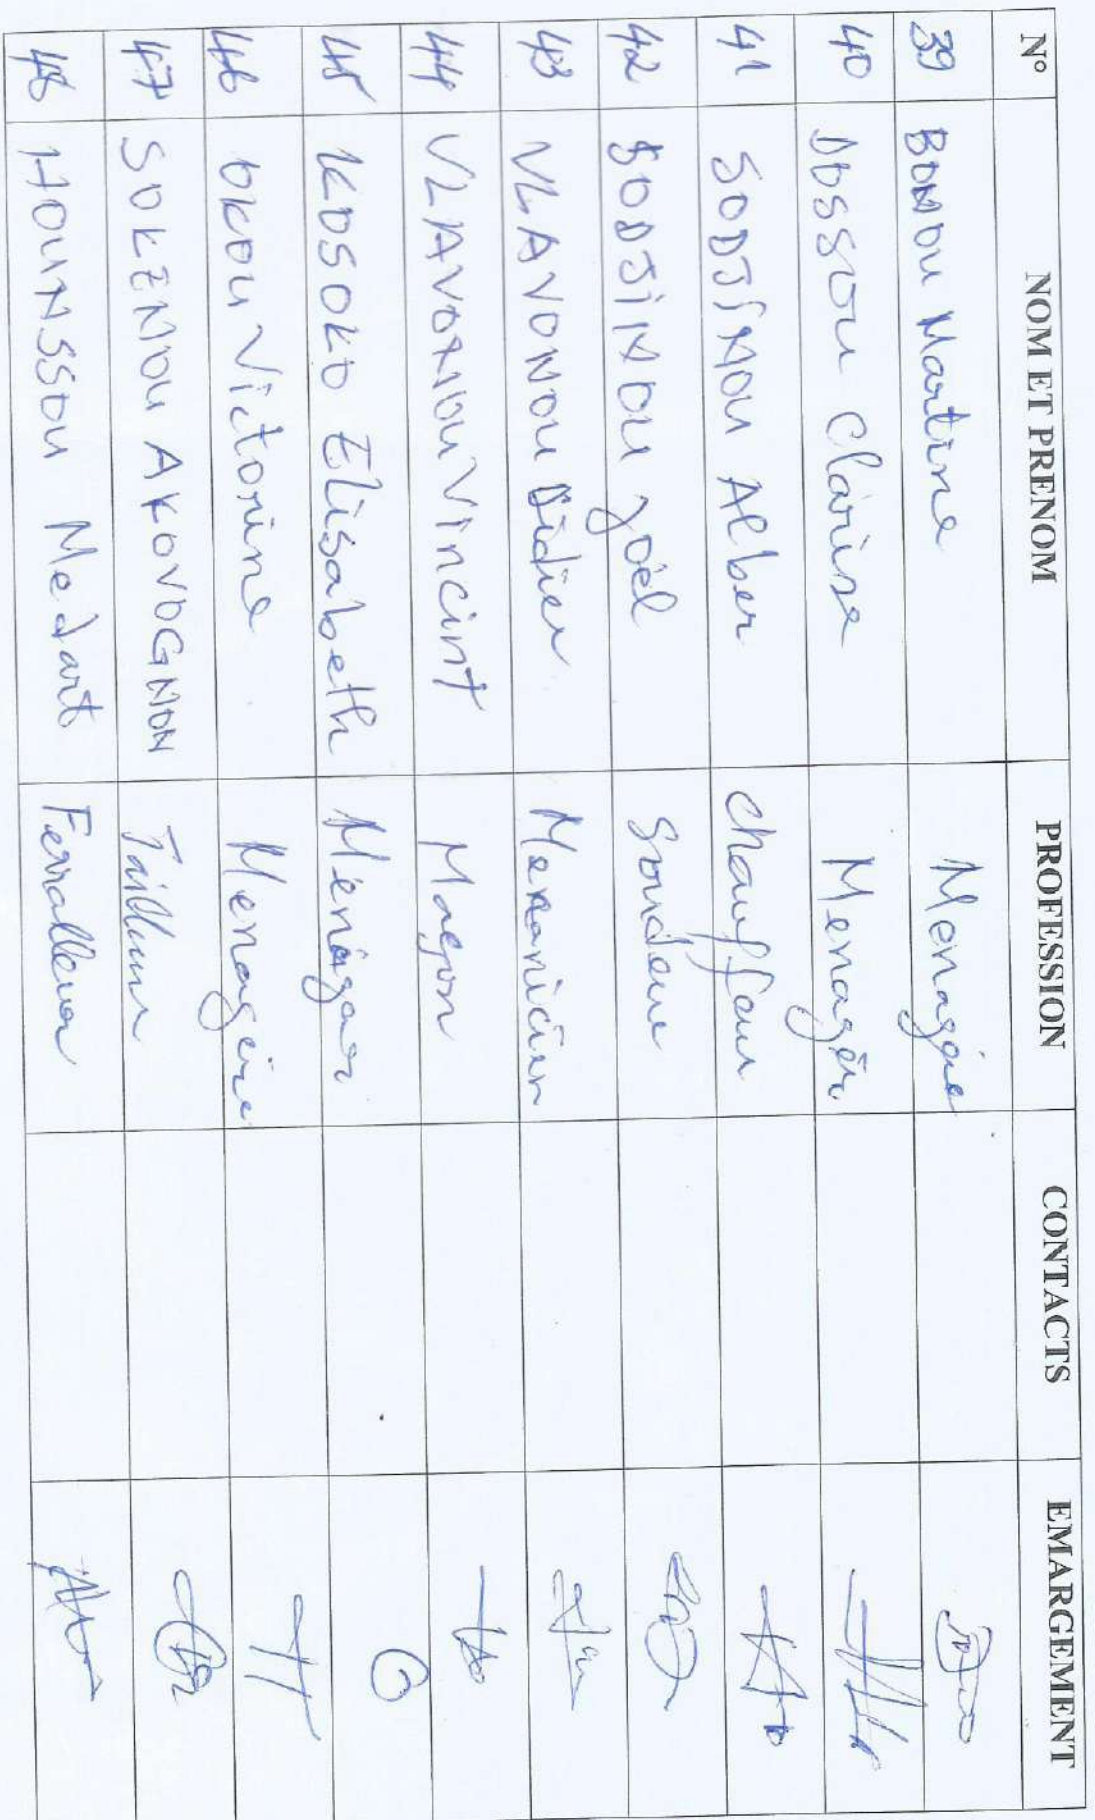 N° NOM ET PRENOM PROFESSION CONTACTS EMARGEMENT
39 BONOU Martine Menagére
40 DOSSOU Clarisse Menagèr
41 SODJINOU Alber chauffeur
42 SODJINOU Joël Soudeur
43 VLAVONOU Didier Mekanicien
44 VLAVONOU Vincint Maçon
45 KOSOKO Elisabeth Ménagar
46 OKOU Victorine Menagère
47 SOKENOU AKOVOGNON Tailleur
48 HOUNSSOU Medart Ferrailleur